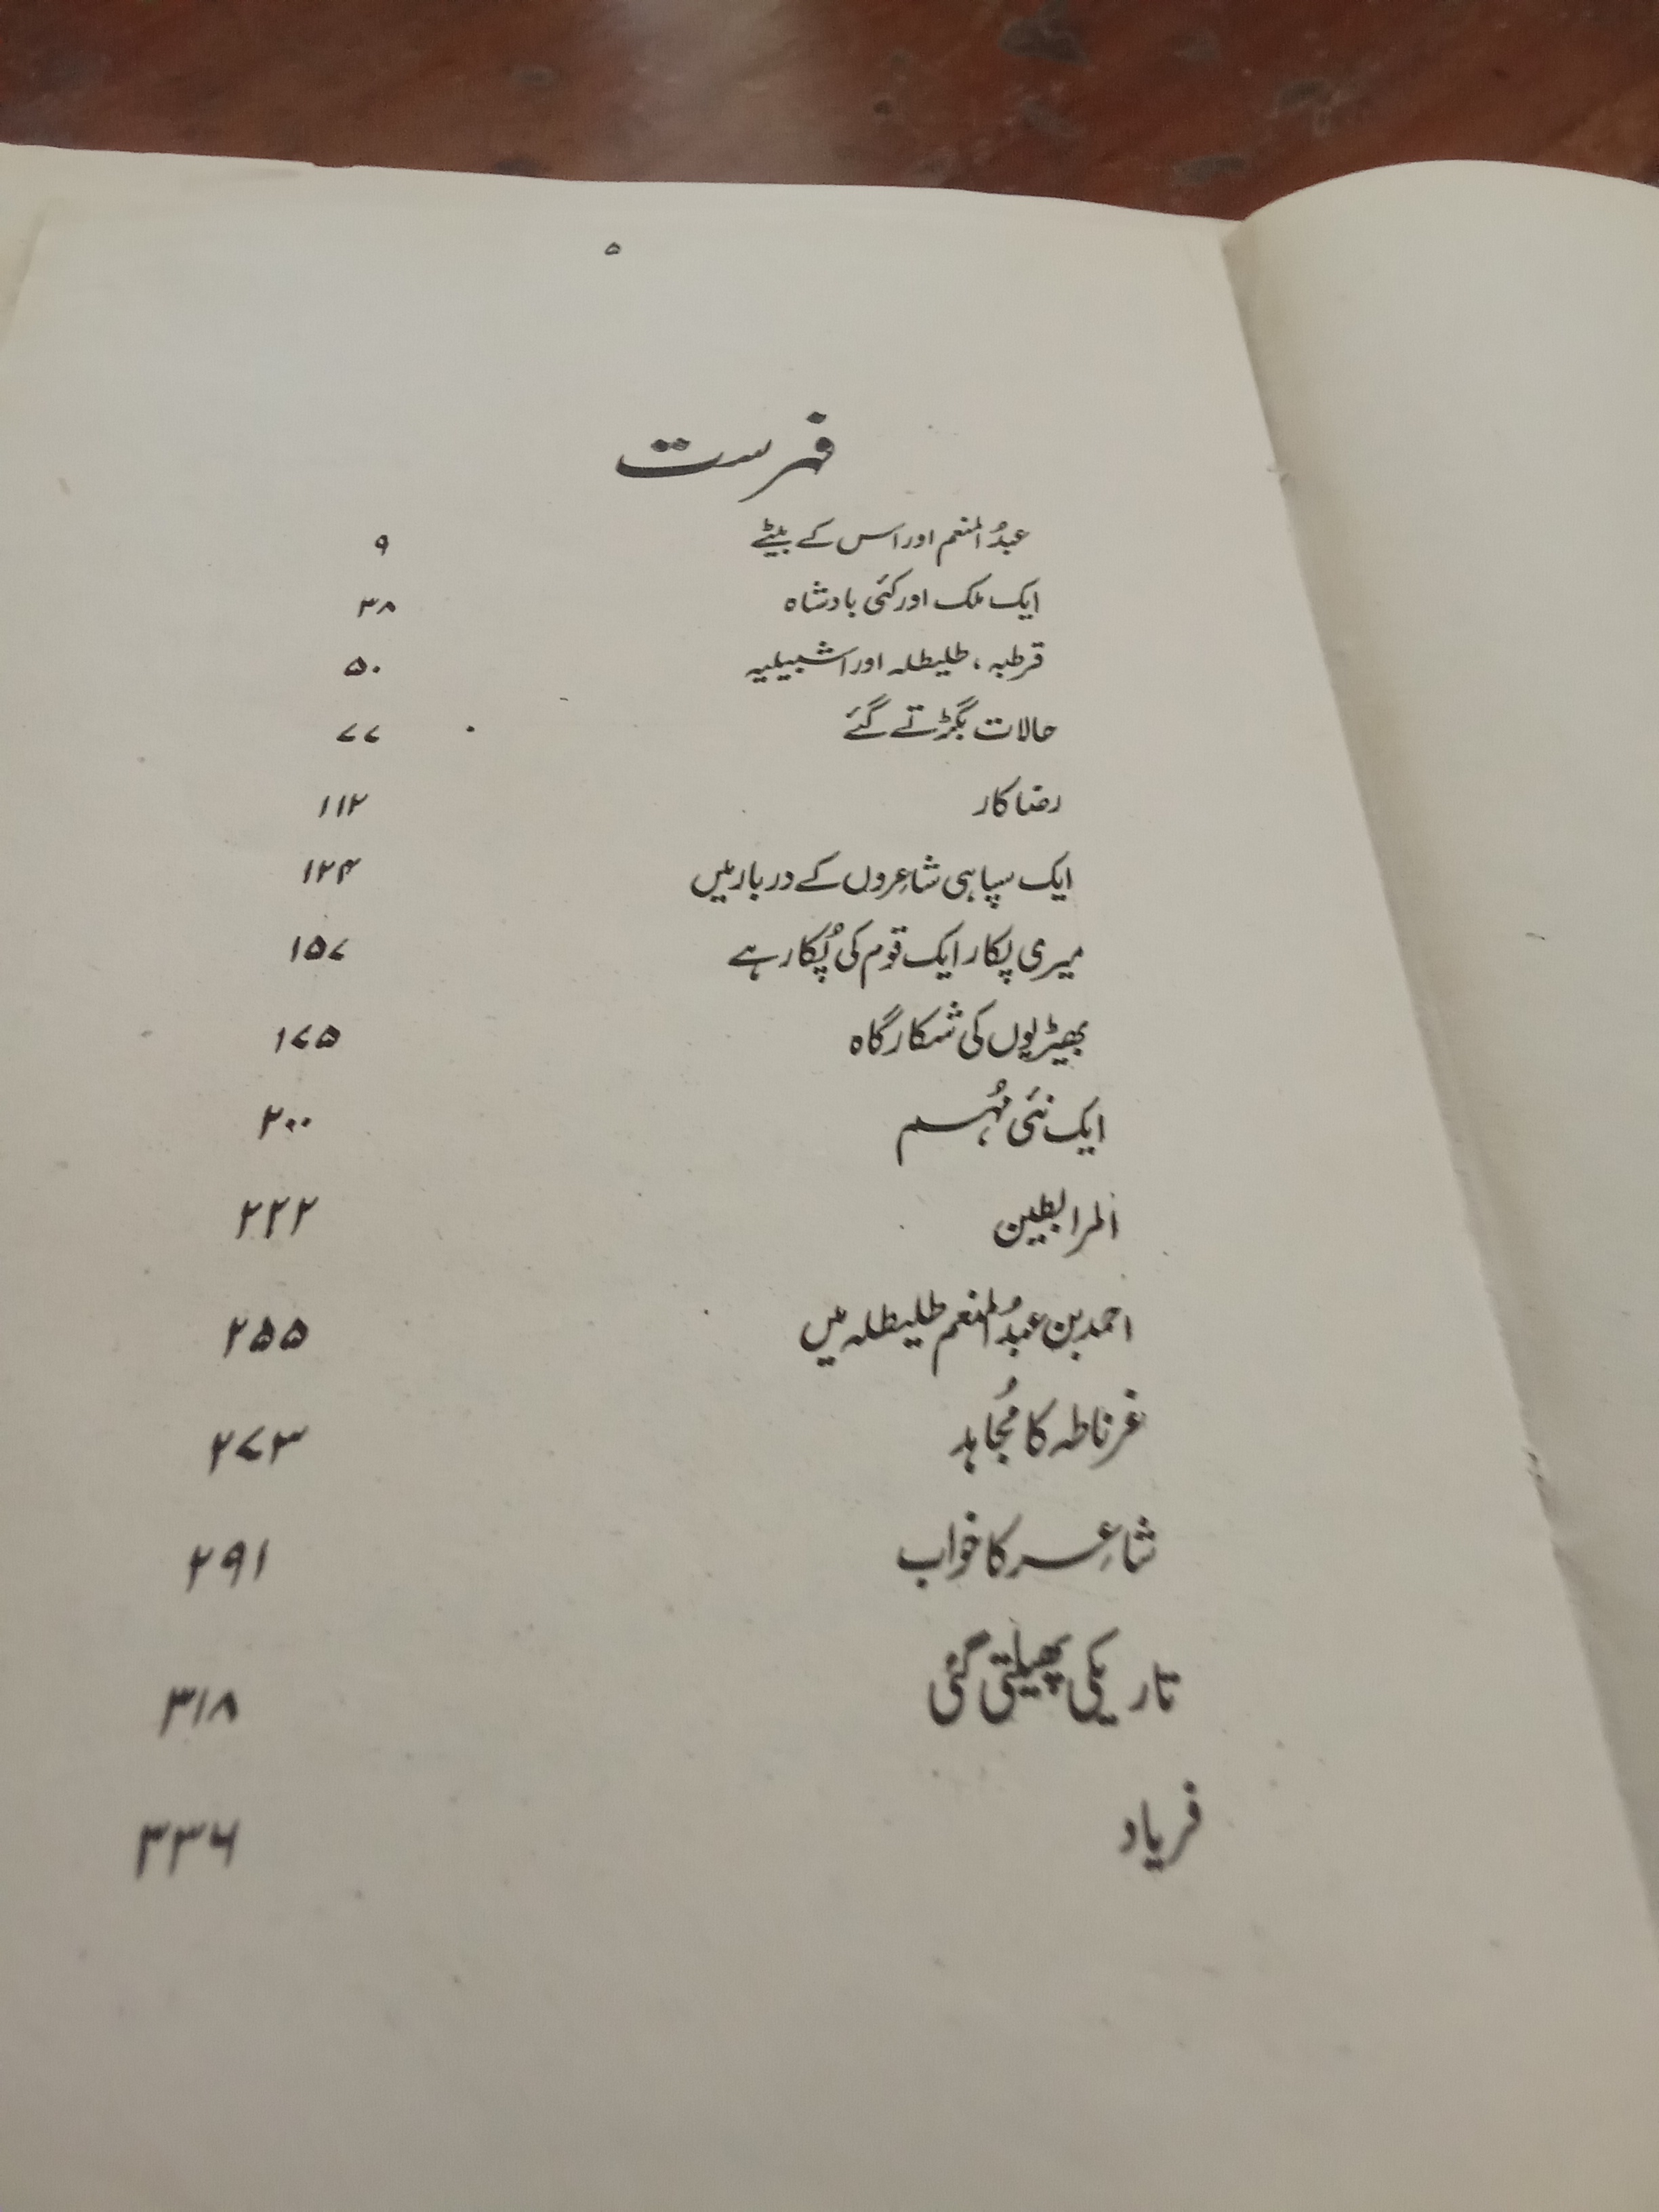 ۵
فہرست
عبدُ المنعم اور اس کے بیٹے ۹
ایک ملک اور کئی بادشاہ ۳۸
قرطبہ، طلیطلہ اور اشبیلیہ ۵۰
حالات بگڑتے گئے ۷۷
رضا کار ۱۱۲
ایک سپاہی شاعروں کے دربار میں ۱۲۴
میری پکار ایک قوم کی پُکار ہے ۱۵۷
بھیڑیوں کی شکار گاہ ۱۷۵
ایک نئی مُہم ۲۰۰
المرابطین ۲۲۲
احمد بن عبدُ المنعم طلیطلہ میں ۲۵۵
غرناطہ کا مُجاہد ۲۷۳
شاعِر کا خواب ۲۹۱
تاریکی پھیلتی گئی ۳۱۸
فریاد ۳۳۶